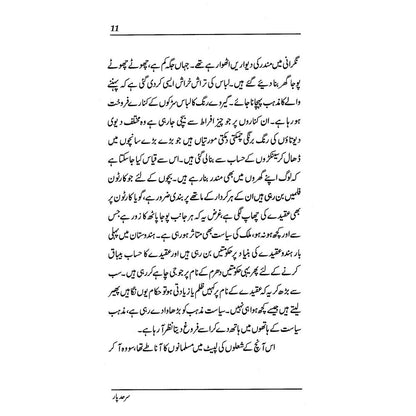 11
نگرانی میں مندر کی دیواریں اٹھوا رہے تھے۔ جہاں جگہ کم ہے، چھوٹے چھوٹے
پوجا گھر بنا دیئے گئے ہیں۔ لباس کی تراش خراش ایسی کر دی گئی ہے کہ پہننے
والے کا مذہب پہچانا جائے۔ گیروے رنگ کا لباس سڑکوں کے کنارے فروخت
ہو رہا ہے۔ ان کناروں پر جو چیز افراط سے بیچی جا رہی ہے وہ مختلف دیوی
دیوتاؤں کی رنگ برنگی چمکتی دمکتی مورتیاں ہیں جو بڑے بڑے سانچوں میں
ڈھال کر سینکڑوں کے حساب سے بنالی گئی ہیں۔ اس سے قیاس کیا جا سکتا ہے
کہ لوگ اپنے گھروں میں بھی مندر بنا رہے ہیں۔ بچوں کے لئے جو کارٹون
فلمیں بن رہی ہیں ان کے ہر کردار کے ماتھے پر بندی ضرور ہے، گویا کارٹون پر
بھی عقیدے کی چھاپ لگی ہے، غرض یہ کہ ہر جانب پوجا پاٹھ کا زور ہے جس
سے اور کچھ ہو نہ ہو، ملک کی سیاست بھی متاثر ہو رہی ہے۔ ہندوستان میں پہلی
بار ہندو عقیدے کی بنیاد پر حکومتیں بن رہی ہیں اور عقیدے کا حساب بیباق
کرنے کے لئے پھر یہی حکومتیں دھرم کے نام پر جو جی چاہے کر رہی ہیں۔ سب
سے بڑھ کر یہ کہ عقیدے کے نام پر کہیں ظلم یا زیادتی ہو تو حکام یوں نگاہیں پھیر
لیتے ہیں جیسے کچھ ہوا ہی نہیں۔ سیاست مذہب کو بڑھاوا دے رہی ہے، مذہب
سیاست کے ہاتھوں میں ہاتھ دے کر اسے فروغ دیتا نظر آ رہا ہے۔
اس آنچ کے شعلوں کی لپیٹ میں مسلمانوں کا آنا طے تھا، سو وہ آ کر
سرحد پار